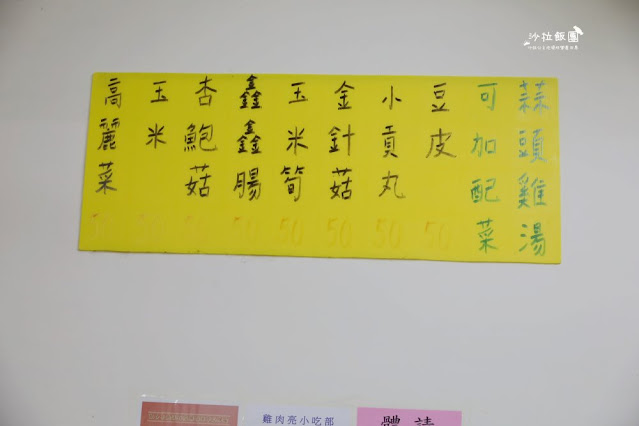 沙拉飯團
蒜頭雞湯
可加配菜
豆皮 50
小貢丸 50
金針菇 50
玉米筍 50
鑫鑫腸 50
杏鮑菇 50
玉米 50
高麗菜 50
雞肉亮小吃部
體請